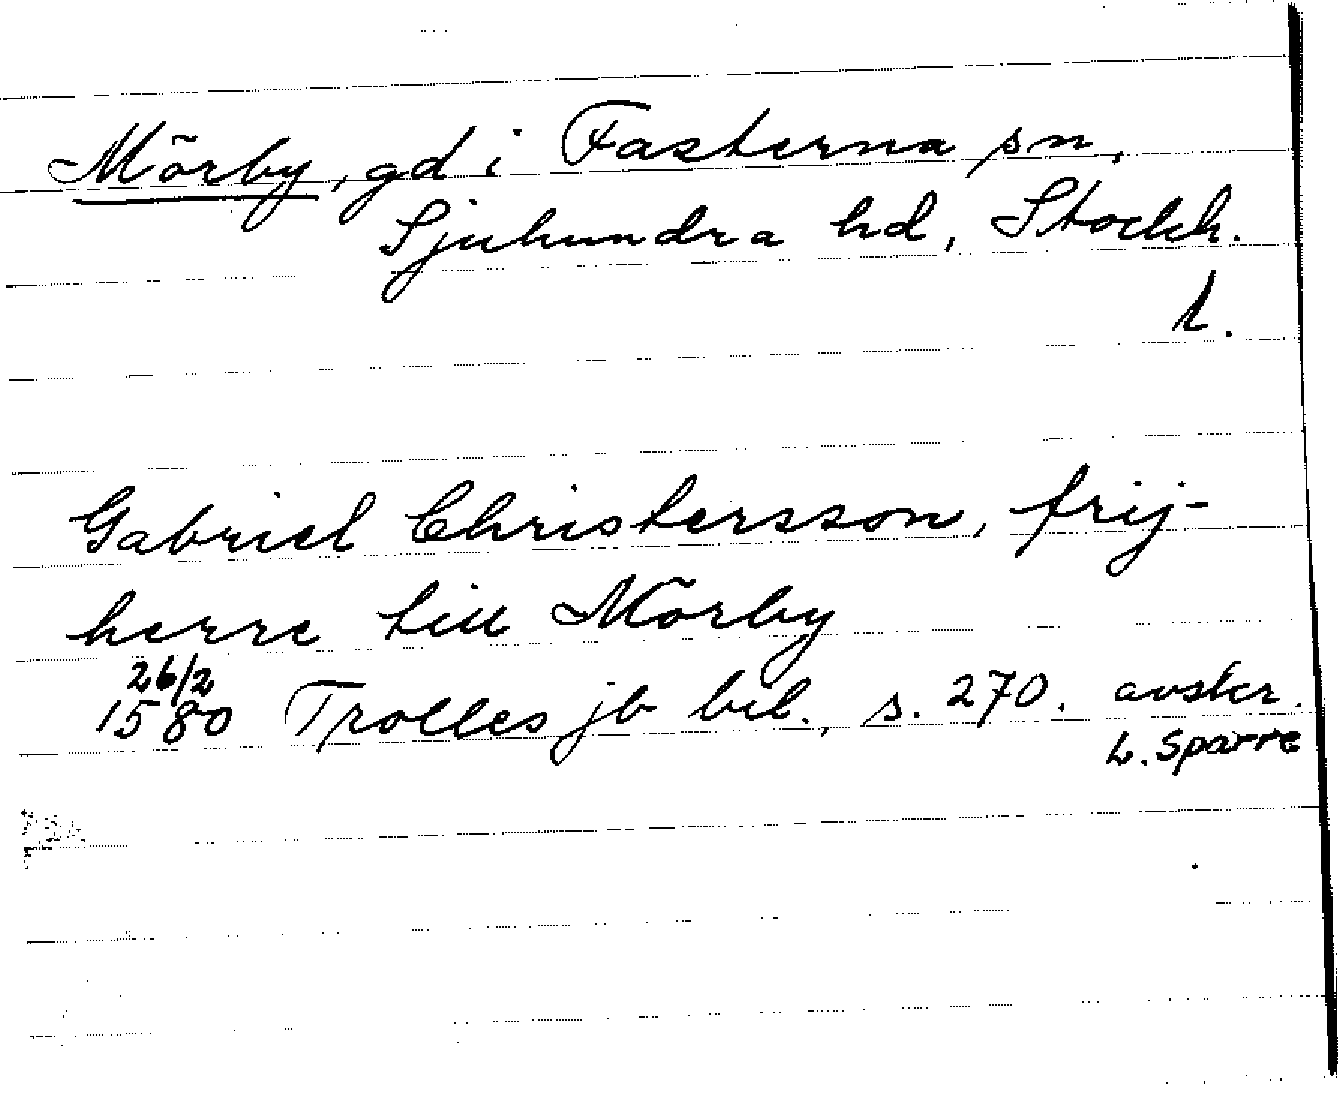 Mörby, gd i Fasterna sn,
Sjuhundra hd, Stockh.
l.
Gabriel Christersson, frij-
herre till Mörby
26/2
1580 Trolles jb bil., s. 270. avskr.
L. Sparre